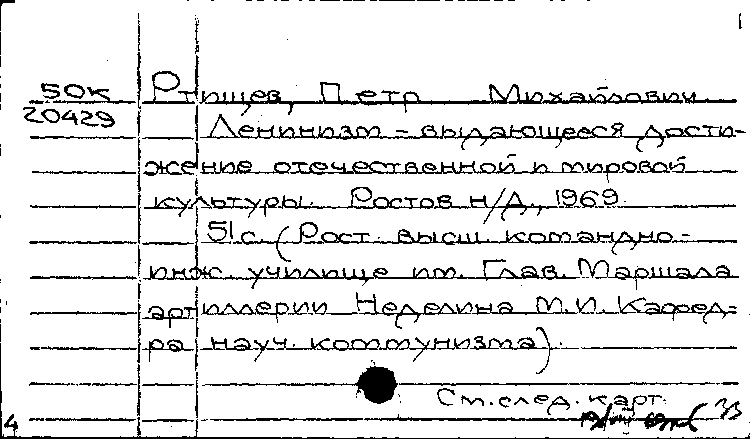 50К Ртищев, Петр Михайлович
20429 Ленинизм – выдающееся дости-
жение отечественной и мировой
культуры. Ростов н/Д., 1969.
51 с. (Рост. высш. командно-
инж. училище им. Глав. Маршала
артиллерии Неделина М.И. Кафед-
ра науч. коммунизма).
См. след. карт.
4